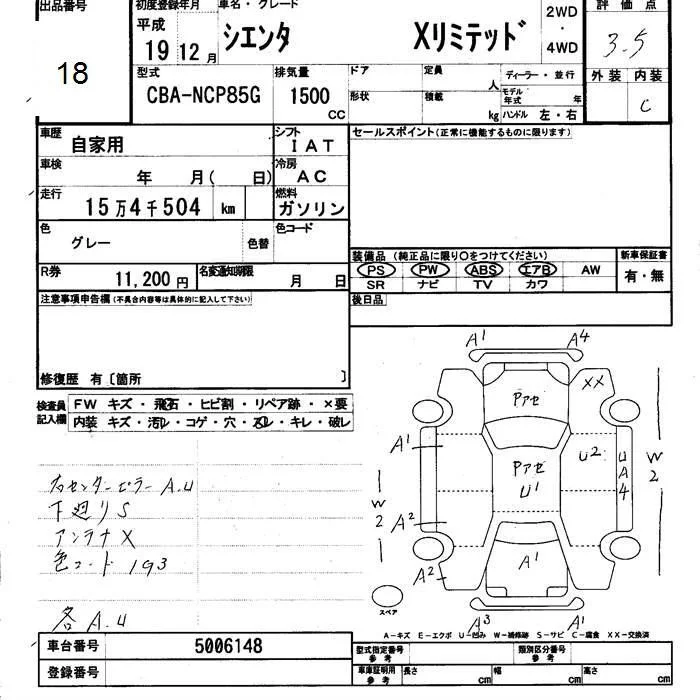 出品番号
18
初度登録年月
平成
19 12 月
車名・グレード
シエンタ Xリミテッド
2WD
・
4WD
評価点
3.5
型式
CBA-NCP85G
排気量
1500
CC
ドア
形状
定員
人
積載
kg
ディーラー・並行
モデル年式 年
ハンドル 左・右
外装 内装
C
車歴
自家用
シフト
IAT
セールスポイント(正常に機能するものに限ります)
車検
年 月( 日)
冷房
AC
走行
15万4千504 km
燃料
ガソリン
色
グレー
色替
色コード
装備品 (純正品に限り○をつけてください)
PS PW ABS エアB AW
SR ナビ TV カワ
新車保証書
有・無
R券
11,200 円
名変通知期限
月 日
後日品
注意事項申告欄 (不具合内容等は具体的に記入して下さい)
修復歴 有〔箇所 〕
検査員
記入欄
FW キズ・飛石・ヒビ割・リペア跡・×要
内装 キズ・汚レ・コゲ・穴・スレ・キレ・破レ
右センターピラーA.U
下廻りS
アンテナX
色コード 193
各A.U
A1 A4
XX
Pアゼ
A1
U2
U
A
4
W
2
Pアゼ
U1
W
2
A2
A2
A1
A3 A1
スペア
A-キズ E-エクボ U-凹み W-補修跡 S-サビ C-腐食 XX-交換済
車台番号
5006148
登録番号
型式指定番号
参考
類別区分番号
参考
車庫証明用
参考
長さ cm
幅 cm
高さ cm